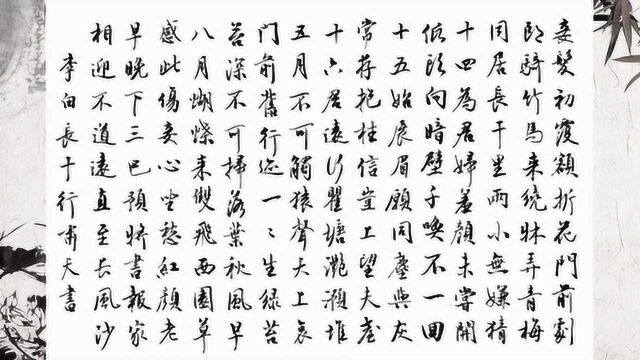 妾髮初覆額折花門前劇
郎騎竹馬来繞牀弄青梅
同居長干里兩小無嫌猜
十四為君婦羞顏未嘗開
低頭向暗壁千喚不一回
十五始展眉願同塵與灰
常存抱柱信豈上望夫臺
十六君遠行瞿塘灩澦堆
五月不可觸猿聲天上哀
門前舊行迹一〻生綠苔
苔深不可掃落葉秋風早
八月蝴蝶来雙飛西園草
感此傷妾心坐愁紅顏老
早晚下三巴預將書報家
相迎不道遠直至長風沙
李白長干行嘯天書